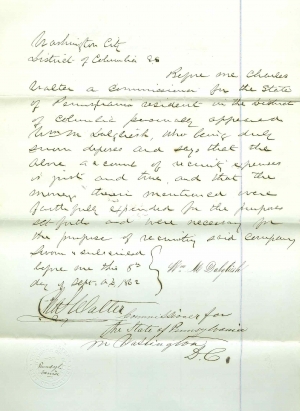 Washington City
District of Columbia ss
Before me Charles
Walter a Commissioner for the State
of Pennsylvania resident in the District
of Columbia personally appeared
Wm M Dalgleish, who being duly
sworn deposes and says that the
above account of recruits expenses
is just and true and that the
money therein mentioned were
faithfully expended for the purposes
set forth and were necessary for
the purpose of recruiting said company
Sworn & subscribed
before me this 5th
day of Sept. A.D. 1862
Wm M Dalgleish
Chas Walter
Commissioner for
the State of Pennsylvania
in Washington
D.C.